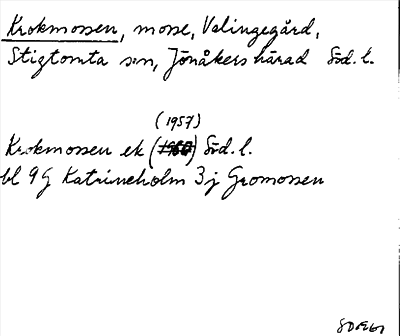 Krokmossen, mosse, Valingegård,
Stigtomta sn, Jönåkers härad Söd. l.
(1957)
Krokmossen ek () Söd. l.
bl 9G Katrineholm 3j Gromossen